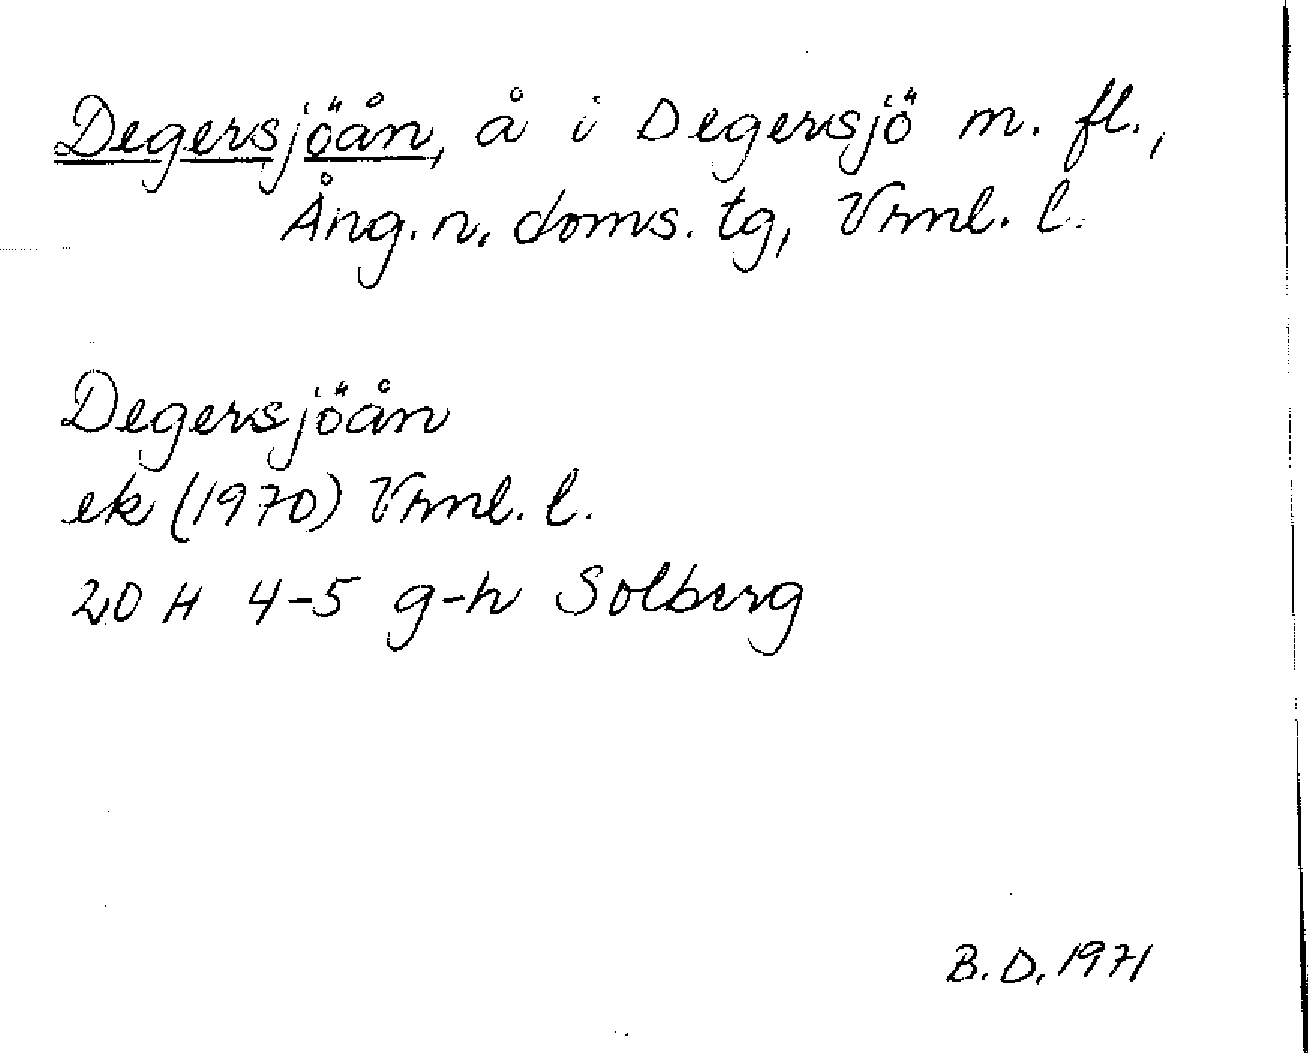 Degersjöån, å i Degersjö m. fl.,
Ång. n. doms. tg, Vrml. l.
Degersjöån
ek (1970) Vrml. l.
20 H 4-5 g-h Solberg
B. D. 1971